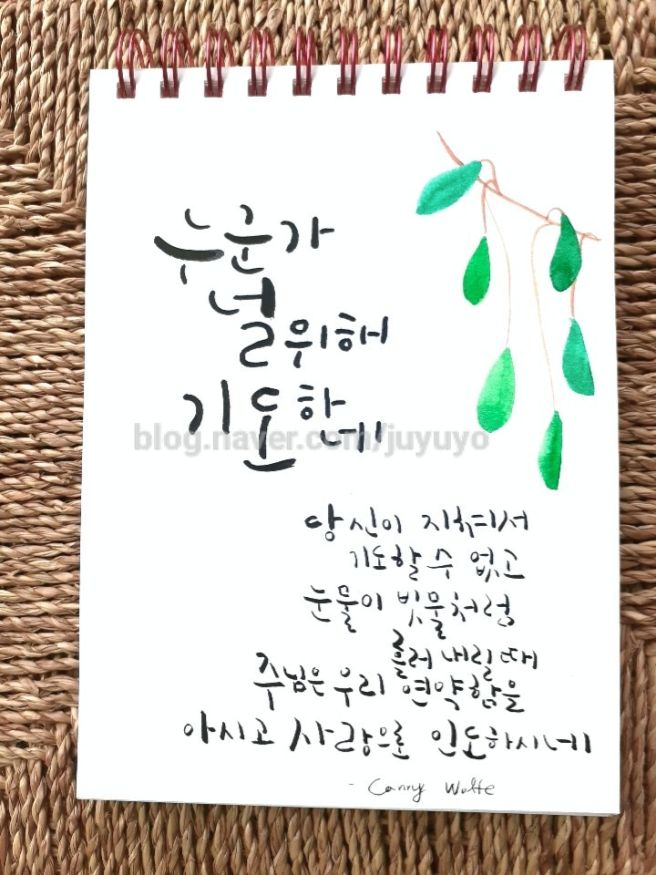 누군가
널 위해
기도하네
blog.naver.com/juyuyo
당신이 지쳐서
기도할 수 없고
눈물이 빗물처럼
흘러 내릴 때
주님은 우리 연약함을
아시고 사랑으로 인도하시네
- Canny Wolfe